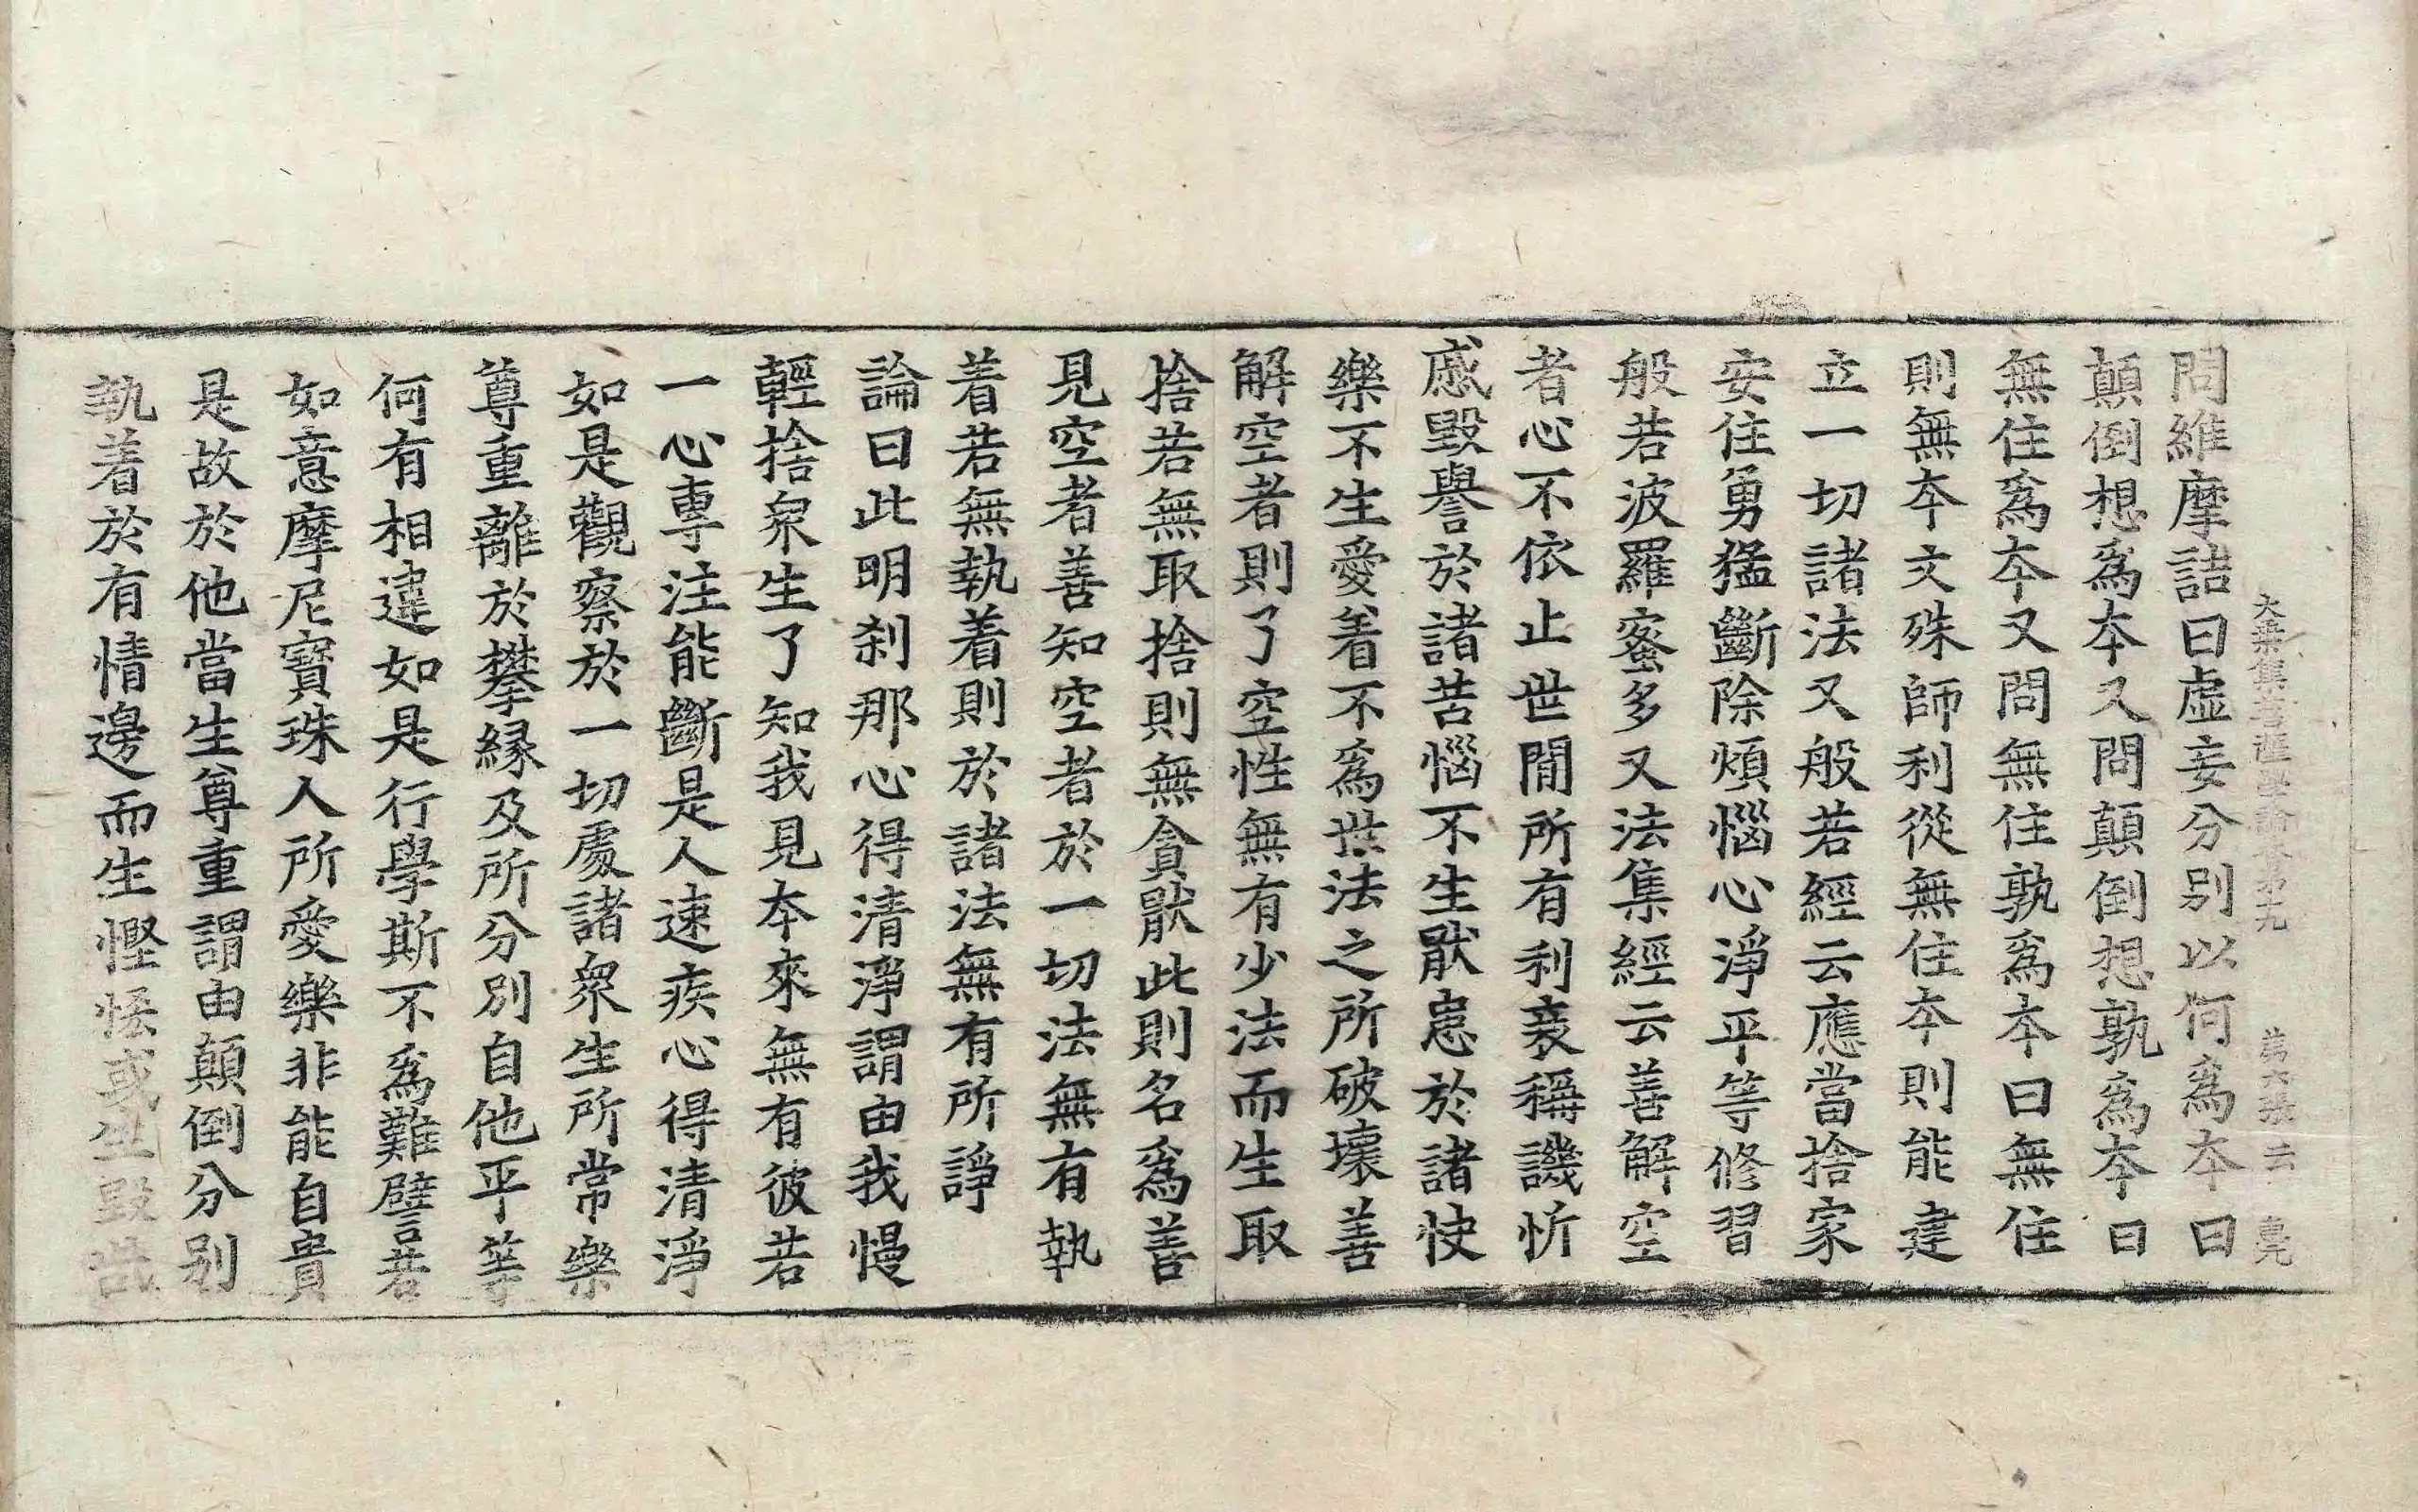 大乘集菩薩學論卷第十九 第六張 云
問維摩詰曰虛妄分別以何爲本曰
顛倒想爲本又問顛倒想孰爲本曰
無住爲本又問無住孰爲本曰無住
則無本文殊師利從無住本則能建
立一切諸法又般若經云應當捨家
安住勇猛斷除煩惱心淨平等修習
般若波羅蜜多又法集經云善解空
者心不依止世間所有利衰稱譏忻
慼毀譽於諸苦惱不生猒患於諸快
樂不生愛着不爲世法之所破壞善
解空者則了空性無有少法而生取
捨若無取捨則無貪猒此則名爲善
見空者善知空者於一切法無有執
着若無執着則於諸法無有所諍
論曰此明刹那心得清淨謂由我慢
輕捨衆生了知我見本來無有彼若
一心專注能斷是人速疾心得清淨
如是觀察於一切處諸衆生所常樂
尊重離於攀緣及所分別自他平等
何有相違如是行學斯不爲難譬若
如意摩尼寶珠人所愛樂非能自貴
是故於他當生尊重謂由顛倒分別
執着於有情邊而生慳恡或生毀呰